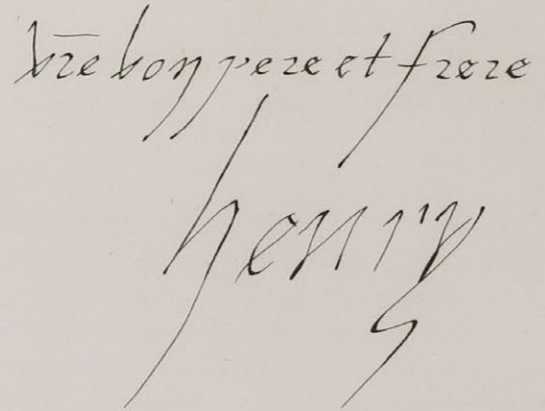 vr̄e bon pere et frere
henry